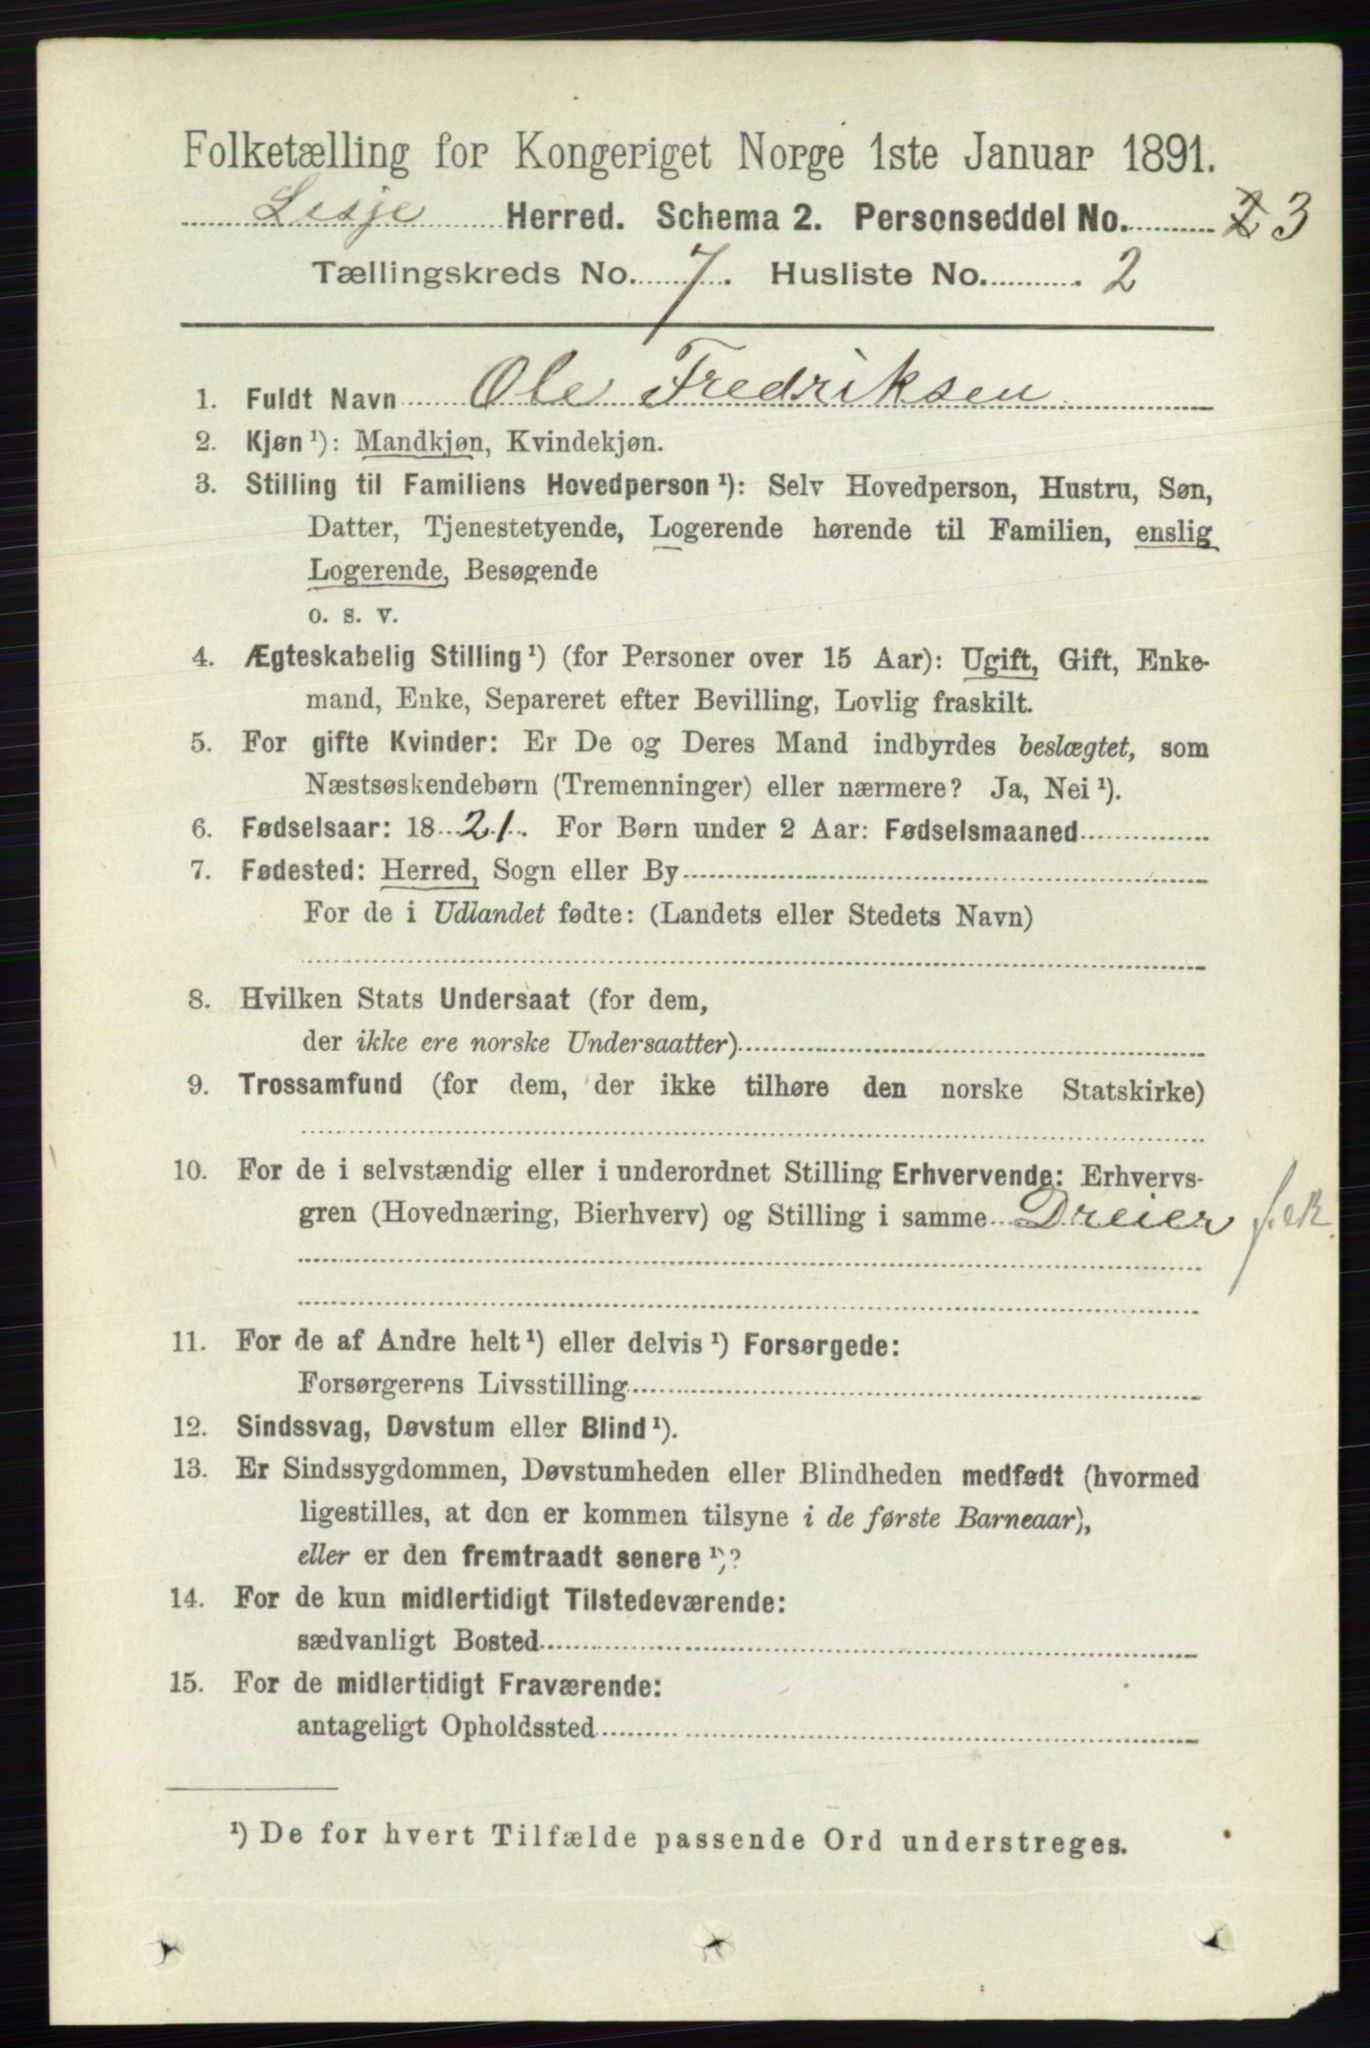 Folketælling for Kongeriget Norge 1ste Januar 1891.
Lesje Herred. Schema 2. Personseddel No. 2 3
Tællingskreds No. 7. Husliste No. 2
1. Fuldt Navn Ole Fredriksen
2. Kjøn¹): Mandkjøn, Kvindekjøn.
3. Stilling til Familiens Hovedperson¹): Selv Hovedperson, Hustru, Søn,
Datter, Tjenestetyende, Logerende hørende til Familien, enslig
Logerende, Besøgende
o. s. v.
4. Ægteskabelig Stilling¹) (for Personer over 15 Aar): Ugift, Gift, Enke-
mand, Enke, Separeret efter Bevilling, Lovlig fraskilt.
5. For gifte Kvinder: Er De og Deres Mand indbyrdes beslægtet, som
Næstsøskendebørn (Tremenninger) eller nærmere? Ja, Nei¹).
6. Fødselsaar: 1821. For Børn under 2 Aar: Fødselsmaaned
7. Fødested: Herred, Sogn eller By
For de i Udlandet fødte: (Landets eller Stedets Navn)
8. Hvilken Stats Undersaat (for dem,
der ikke ere norske Undersaatter)
9. Trossamfund (for dem, der ikke tilhøre den norske Statskirke)
10. For de i selvstændig eller i underordnet Stilling Erhvervende: Erhvervs-
gren (Hovednæring, Bierhverv) og Stilling i samme Dreier f.eR.
11. For de af Andre helt¹) eller delvis¹) Forsørgede:
Forsørgerens Livsstilling
12. Sindssvag, Døvstum eller Blind¹).
13. Er Sindssygdommen, Døvstumheden eller Blindheden medfødt (hvormed
ligestilles, at den er kommen tilsyne i de første Barneaar),
eller er den fremtraadt senere¹)?
14. For de kun midlertidigt Tilstedeværende:
sædvanligt Bosted
15. For de midlertidigt Fraværende:
antageligt Opholdssted
¹) De for hvert Tilfælde passende Ord understreges.